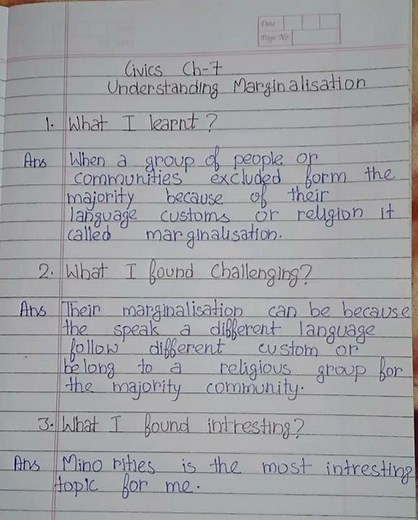 Date
Page No.
Civics Ch-7
Understanding Marginalisation
1. What I learnt?
Ans When a group of people or
communities excluded form the
majority because of their
language customs or religion it
called marginalisation.
2. What I found Challenging?
Ans Their marginalisation can be because
the speak a different language
follow different custom or
belong to a religious group for
the majority community.
3. What I found intresting?
Ans Mino rities is the most intresting
topic for me.